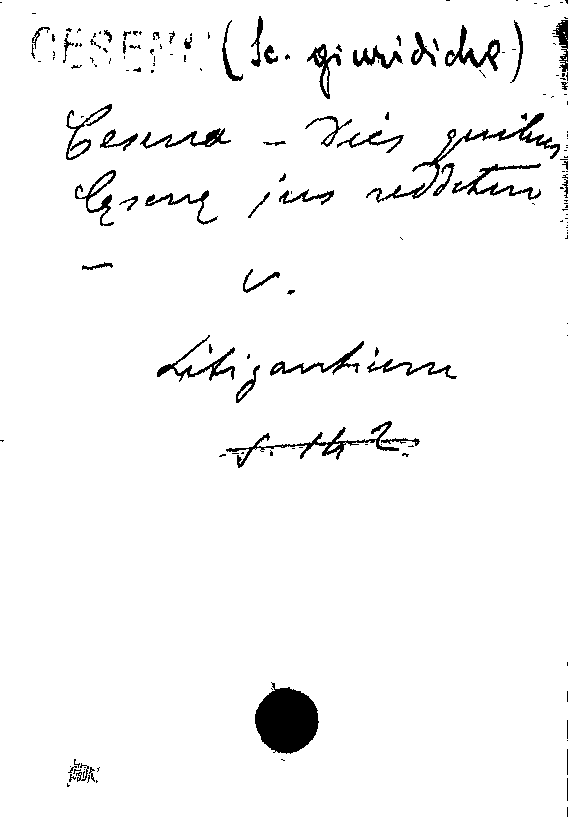 CESENA (Sc. giuridiche)
Cesena – Dies quibus
Cęsenę jus redditur
– v.
Litigantium
f. 142.